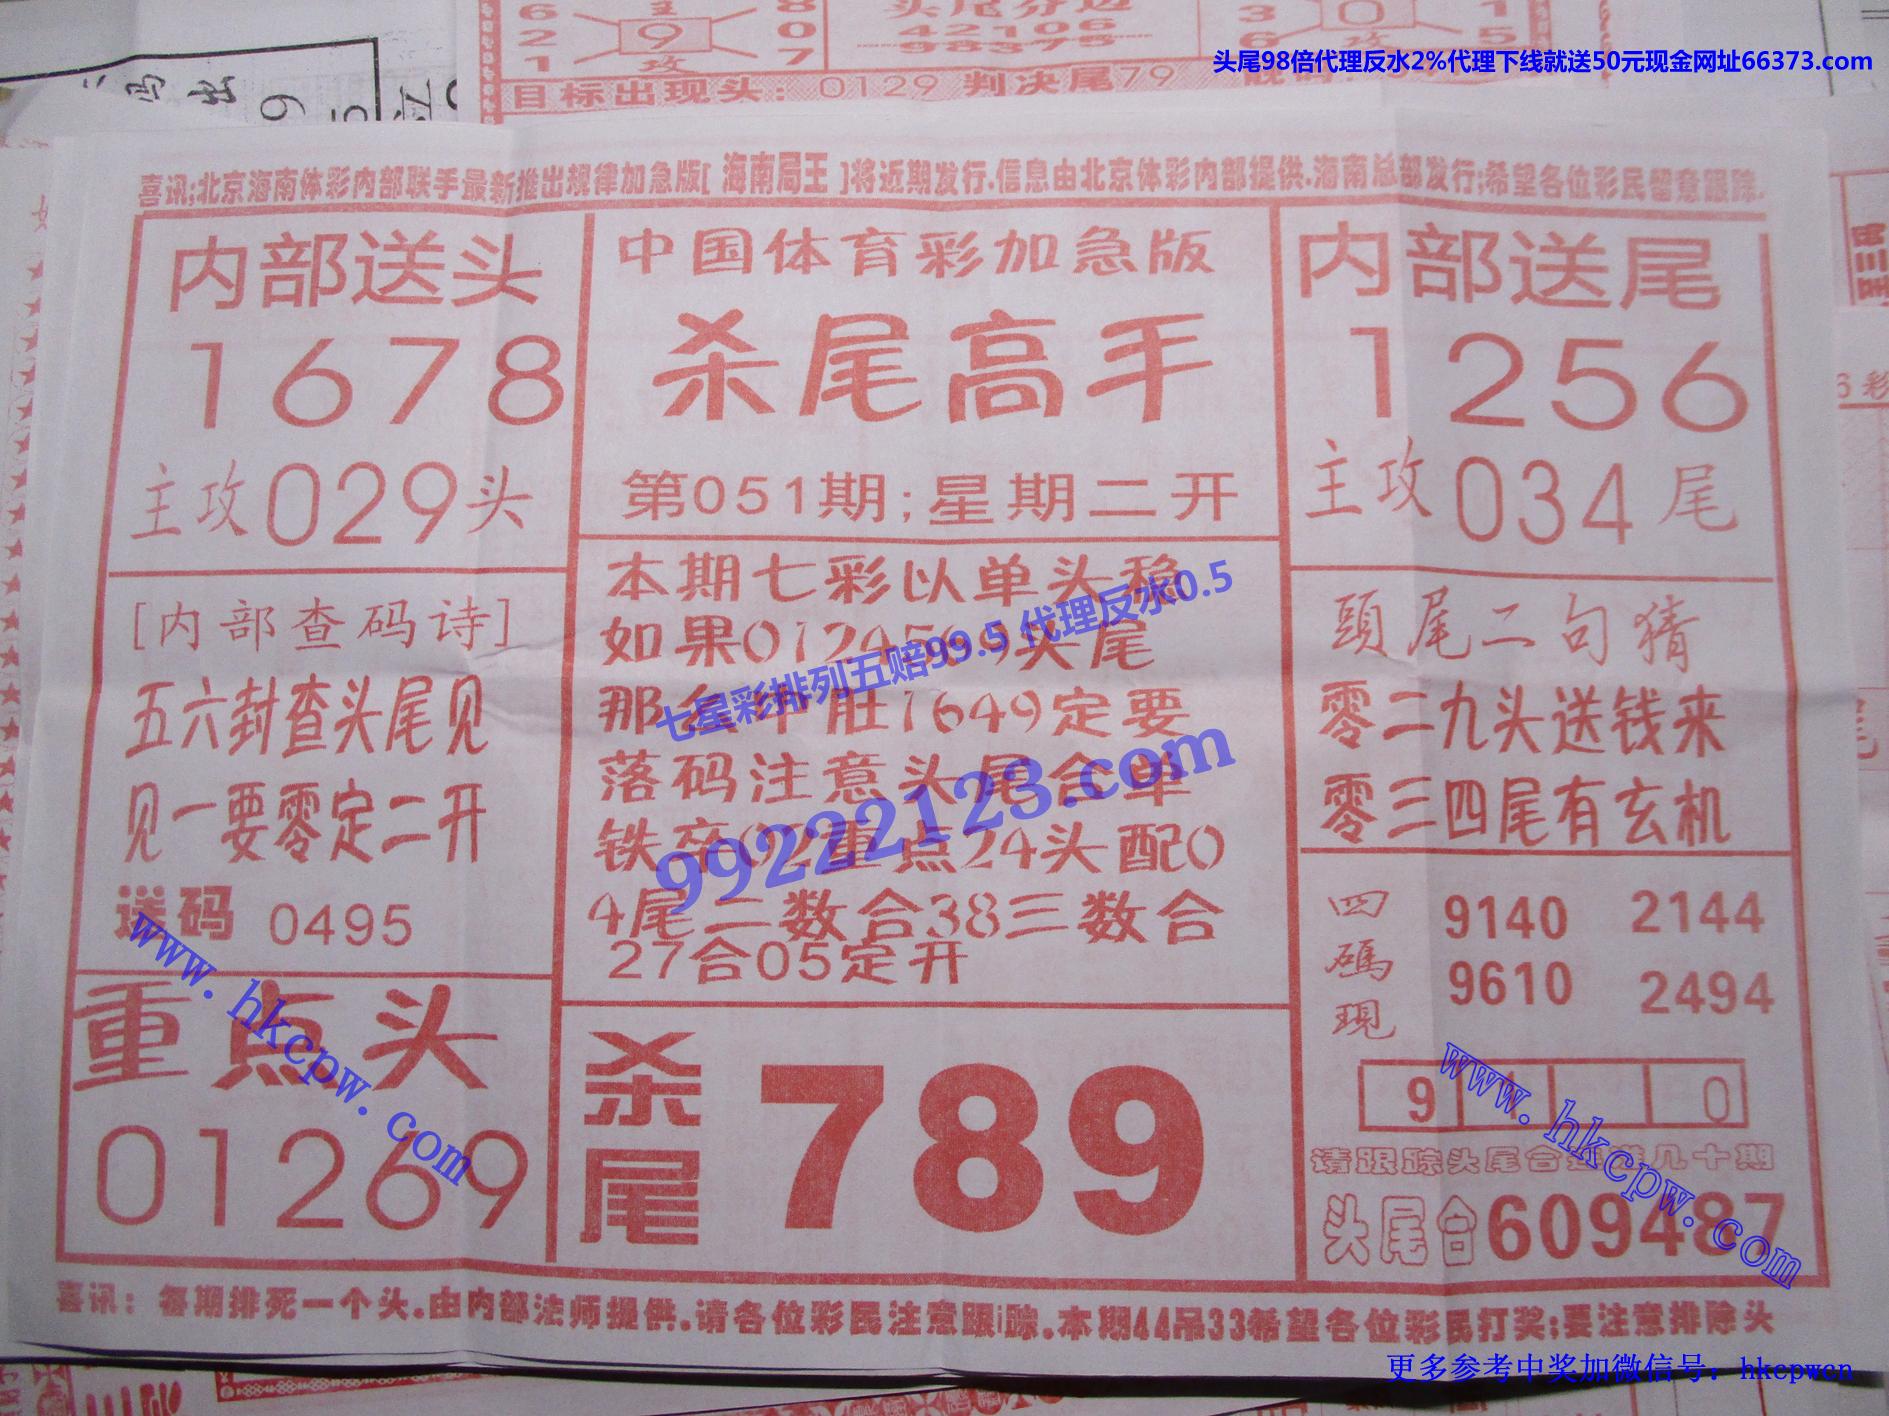 头尾98倍代理反水2%代理下线就送50元现金网址66373.com
头尾分边
42106
98375
目标出现头：0129 判决尾79
喜讯;北京海南体彩内部联手最新推出规律加急版[ 海南局王 ]将近期发行.信息由北京体彩内部提供.海南总部发行;希望各位彩民留意跟踪.
内部送头
1678
主攻029头
中国体育彩加急版
杀尾高手
第051期;星期二开
内部送尾
1256
主攻034尾
[内部查码诗]
五六封查头尾见
见一要零定二开
送码 0495
本期七彩以单头稳
如果0124569头尾
那么中肚1649定要
落码注意头尾合单
铁卒092重点24头配0
4尾二数合38三数合
27合05定开
頭尾二句猜
零二九头送钱来
零三四尾有玄机
四碼現
9140 2144
9610 2494
9 1 0
请跟踪头尾合连准几十期
头尾合609487
重点头
01269
杀尾
789
喜讯：每期排死一个头.由内部法师提供.请各位彩民注意跟踪.本期44吊33希望各位彩民打奖;要注意排除头
七星彩排列五赔99.5 代理反水0.5
99222123.com
www.hkcpw.com
www.hkcpw.com
更多参考中奖加微信号：hkcpwcn